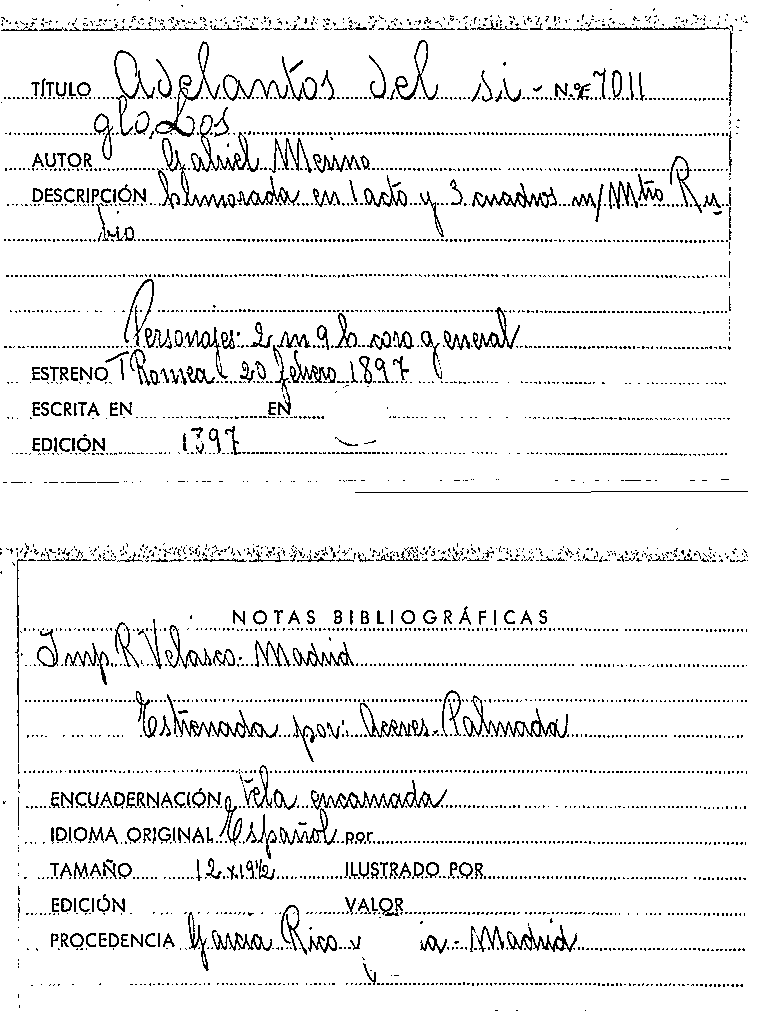 TÍTULO Adelantos del si- N.º E 7011
glo, Los
AUTOR Gabriel Merino
DESCRIPCIÓN Humorada en 1 acto y 3 cuadros m/ Mtro Ru-
bio
Personajes: 2 m 9 h coro general
ESTRENO T Romea 20 febrero 1897
ESCRITA EN EN
EDICIÓN 1897
NOTAS BIBLIOGRÁFICAS
Imp. R Velasco - Madrid
Estrenada por: Aceves - Palmada
ENCUADERNACIÓN Tela encarnada
IDIOMA ORIGINAL Español por
TAMAÑO 12 x 19½ ILUSTRADO POR
EDICIÓN VALOR
PROCEDENCIA Garcia Rico y ia - Madrid